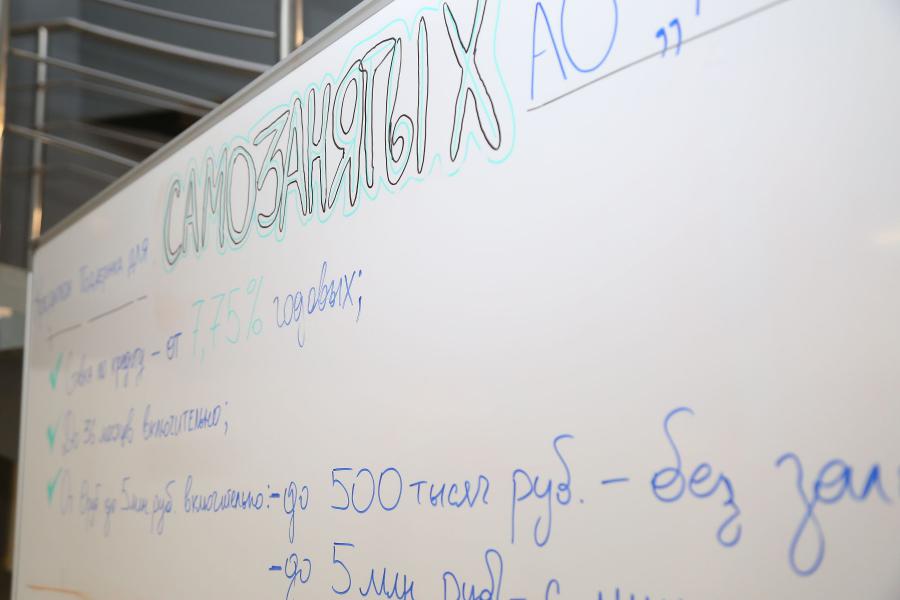 Поддержка для САМОЗАНЯТЫХ АО „
Ставка по кредиту – от 7,75% годовых;
До 36 месяцев включительно;
до 5 млн руб. включительно: - до 500 тысяч руб. – без
- до 5 млн руб. – с